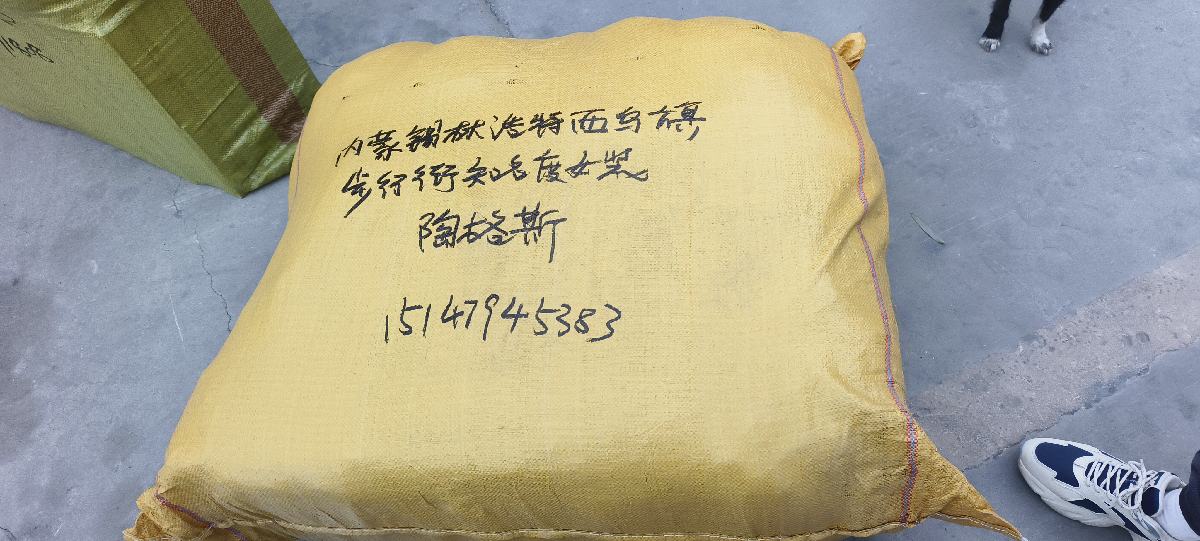 1808
内蒙锡林浩特西乌旗
步行街知名度女装
陶格斯
15147945383